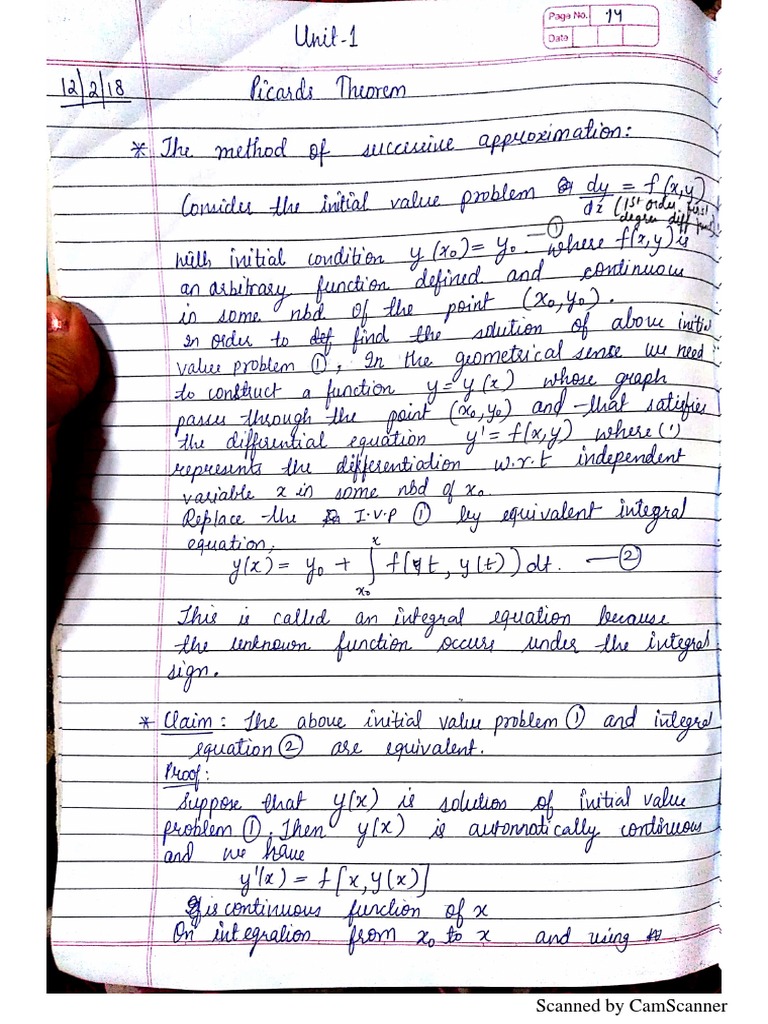 Unit-1
Page No. 14
Date
12/2/18 Picards Theorem
* The method of successive approximation:
Consider the initial value problem dy/dx = f(x,y)
(1st order first
degree diff
with initial condition y(x₀) = y₀ —① where f(x,y) is
an arbitrary function defined and continuous
in some nbd of the point (x₀,y₀).
In order to find the solution of above initial
value problem ①, In the geometrical sense we need
to construct a function y = y(x) whose graph
passes through the point (x₀,y₀) and that satisfies
the differential equation y' = f(x,y) where (')
represents the differentiation w.r.t independent
variable x in some nbd of x₀.
Replace the I.V.P ① by equivalent integral
equation,
y(x) = y₀ + ∫ₓ₀ˣ f(t, y(t)) dt. —②
This is called an integral equation because
the unknown function occurs under the integral
sign.
* Claim: The above initial value problem ① and integral
equation ② are equivalent.
Proof:
Suppose that y(x) is solution of initial value
problem ①. Then y(x) is automatically continuous
and we have
y'(x) = f[x, y(x)]
is continuous function of x
On integration from x₀ to x and using
Scanned by CamScanner